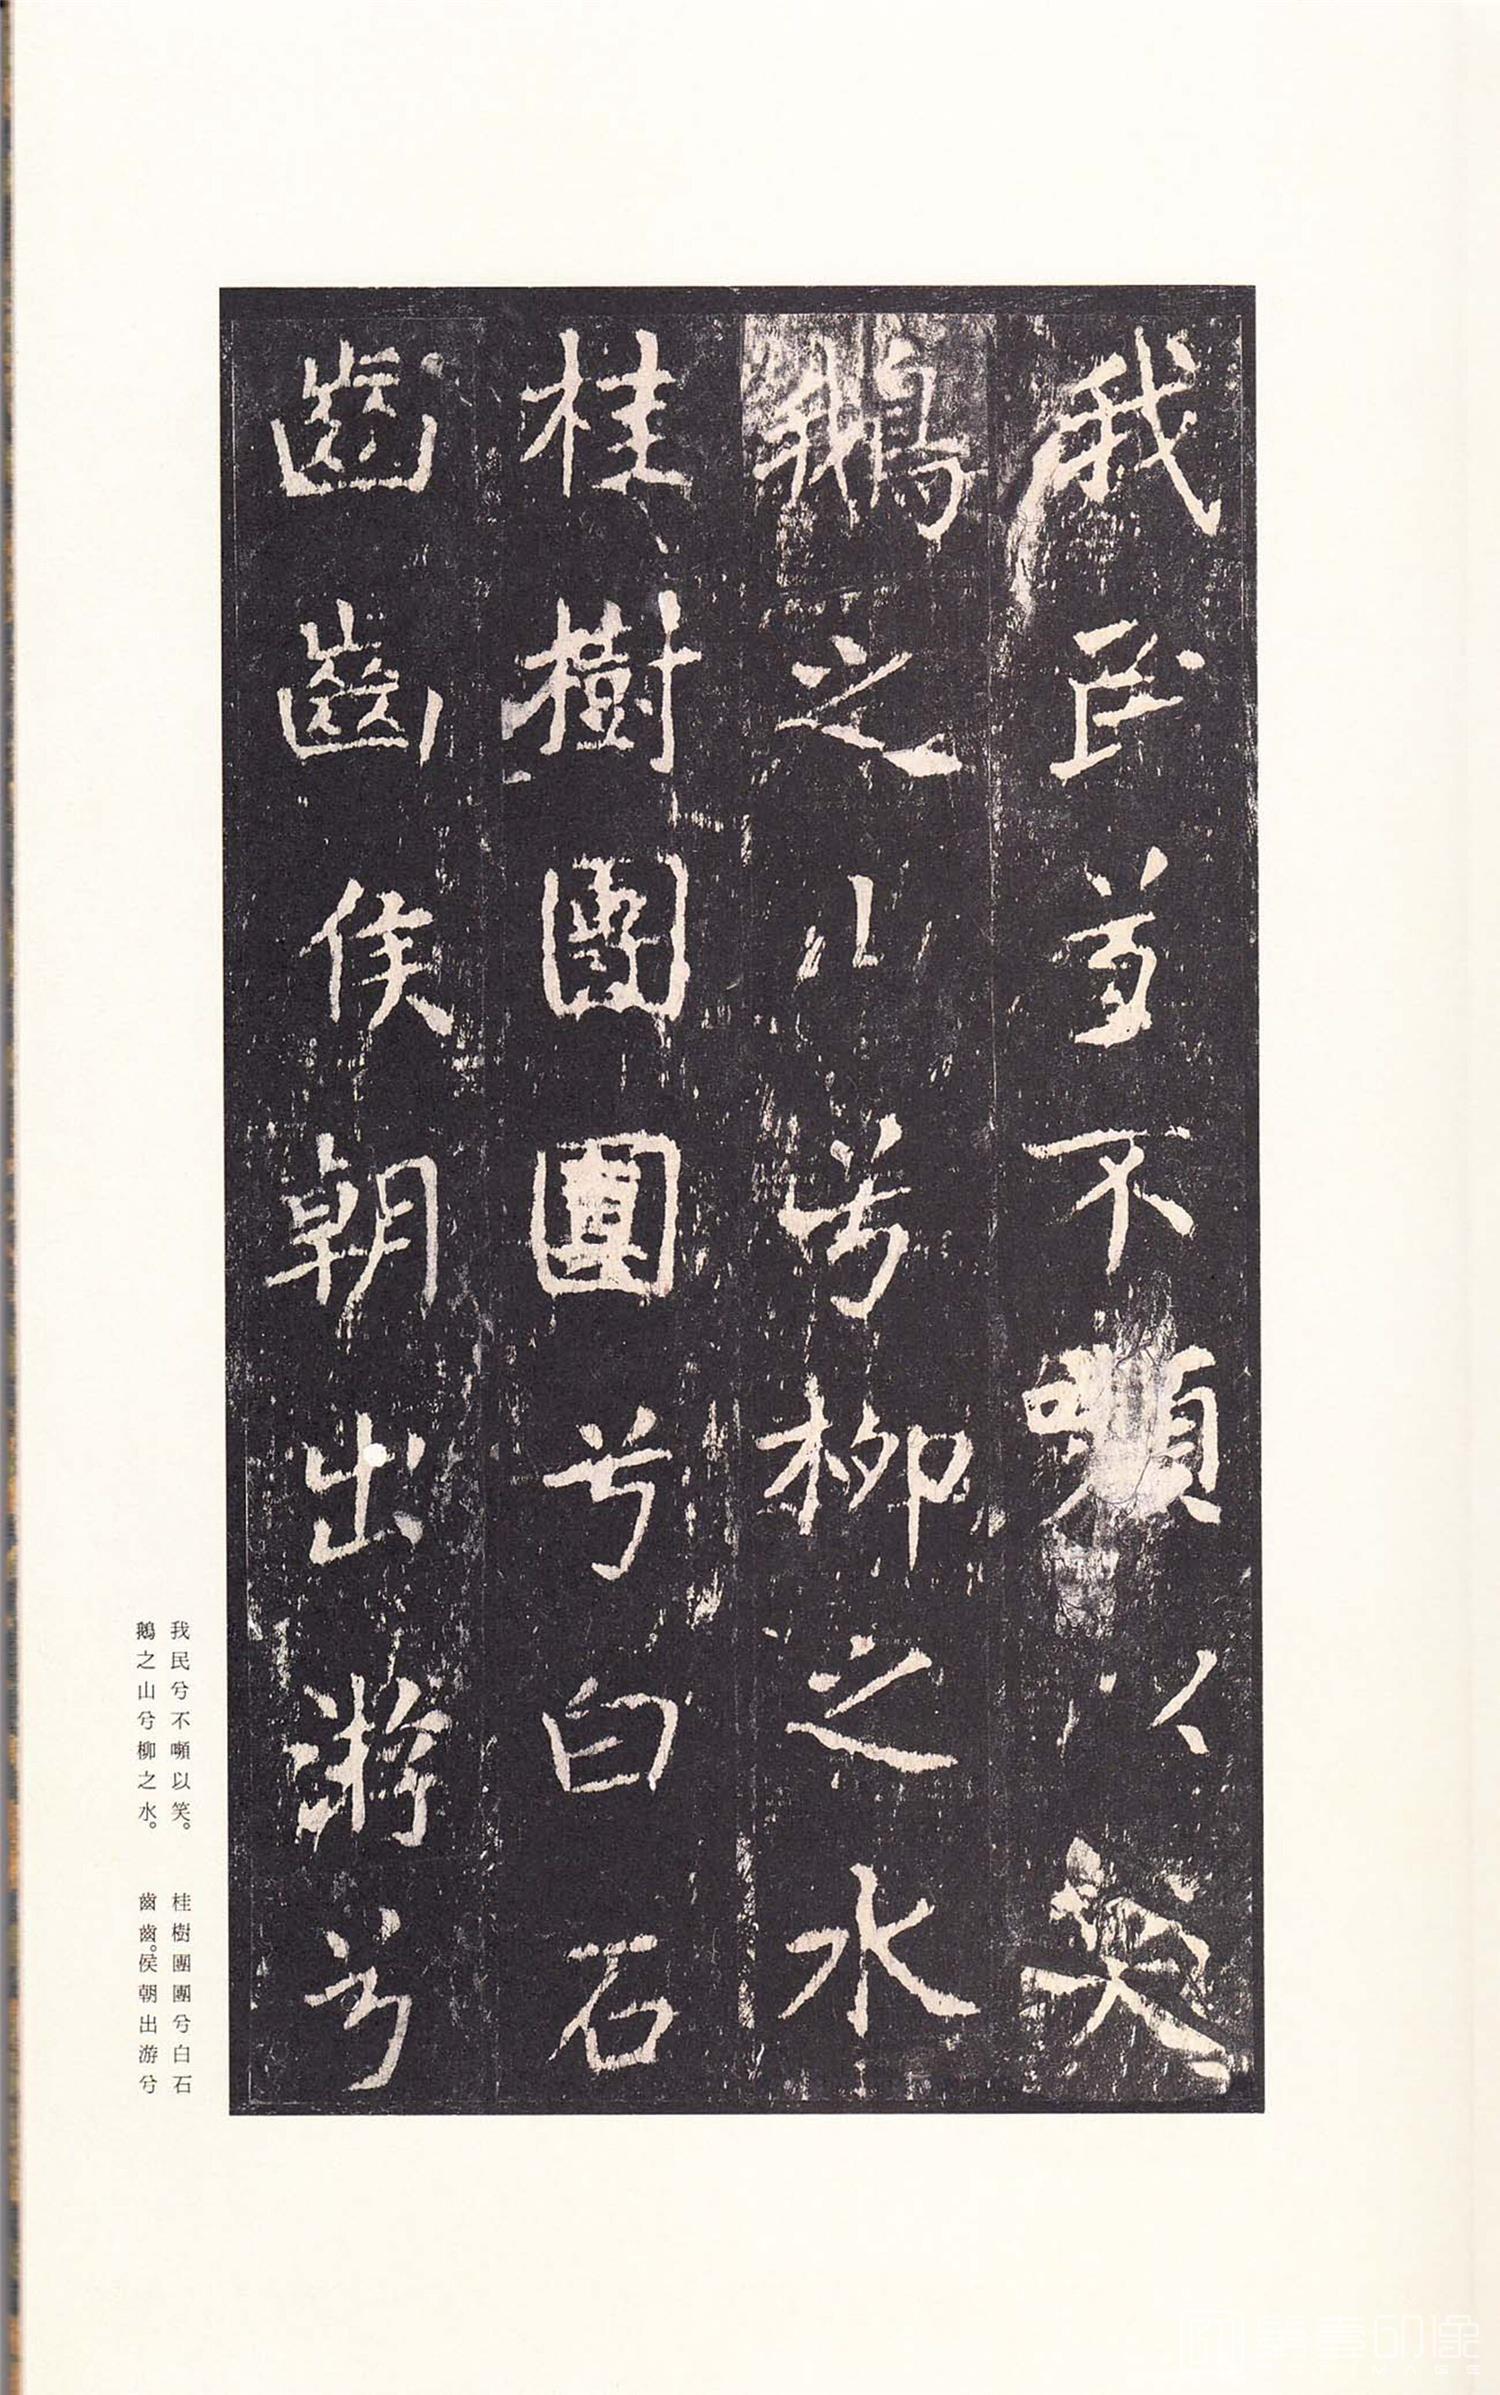 我民兮不嚬以笑
鵝之山兮柳之水
桂樹團團兮白石
齒齒侯朝出游兮
我民兮不嚬以笑。
鵝之山兮柳之水。
桂樹團團兮白石
齒齒。侯朝出游兮